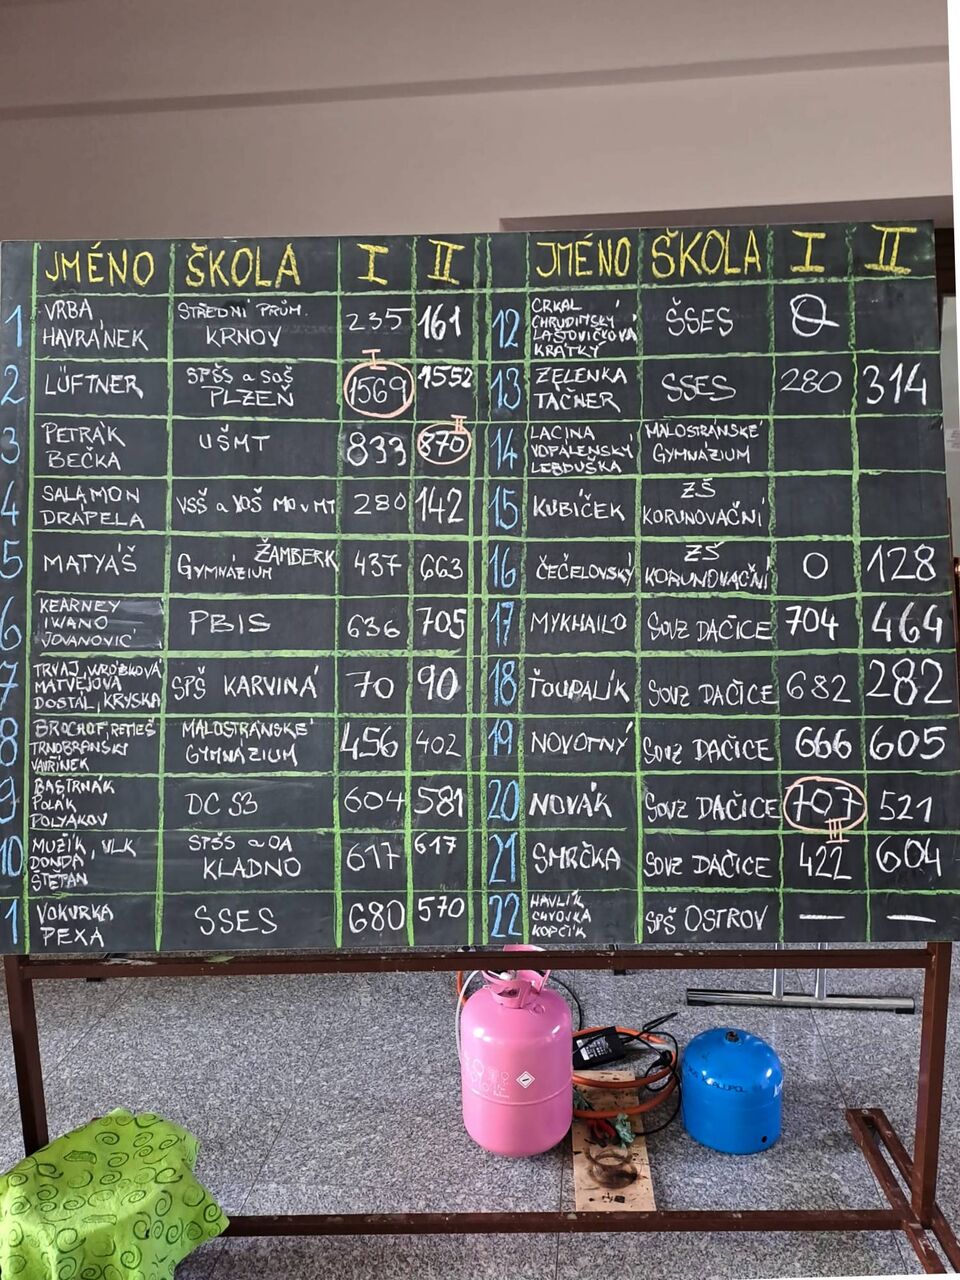 JMÉNO ŠKOLA I II
1 VRBA HAVRÁNEK STŘEDNÍ PRŮM. KRNOV 235 161
I
2 LÜFTNER SPŠS a SOŠ PLZEŇ 1569 1552
II
3 PETRÁK BEČKA UŠMT 833 870
4 SALAMON DRÁPELA VSŠ a VOŠ MO v MT 280 142
5 MATYÁŠ GYMNÁZIUM ŽAMBERK 437 663
6 KEARNEY IWANO JOVANOVIĆ PBIS 636 705
7 TRVAJ, MATVĚJOVÁ DOSTAL, KRYSKA SPŠ KARVINÁ 70 90
8 MALOSTRANSKÉ GYMNÁZIUM 456 402
9 BASTRNÁK POLÁK POLYAKOV DC S3 604 581
10 MUŽÍK, VLK DONDA ŠTĚTAN SPŠS a OA KLADNO 617 617
1 VOKURKA PEXA SSES 680 570
JMÉNO ŠKOLA I II
12 CRKAL CHRUDIMSKÝ LAŠTOVIČKOVÁ KRÁTKÝ ŠSES 0
13 ZELENKA TAČNER SSES 280 314
14 LACINA VOPALENSKÝ LEBDUŠKA MALOSTRANSKÉ GYMNÁZIUM
15 KUBÍČEK ZŠ KORUNOVAČNÍ
16 ČEČELOVSKÝ ZŠ KORUNOVAČNÍ 0 128
17 MYKHAILO SOVZ DAČICE 704 464
18 ŤOUPALÍK SOVZ DAČICE 682 282
19 NOVOTNÝ SOVZ DAČICE 666 605
20 NOVÁK SOVZ DAČICE 707 521
III
21 SMRČKA SOVZ DAČICE 422 604
22 HAVLÍK KOPČÍK SPŠ OSTROV — —